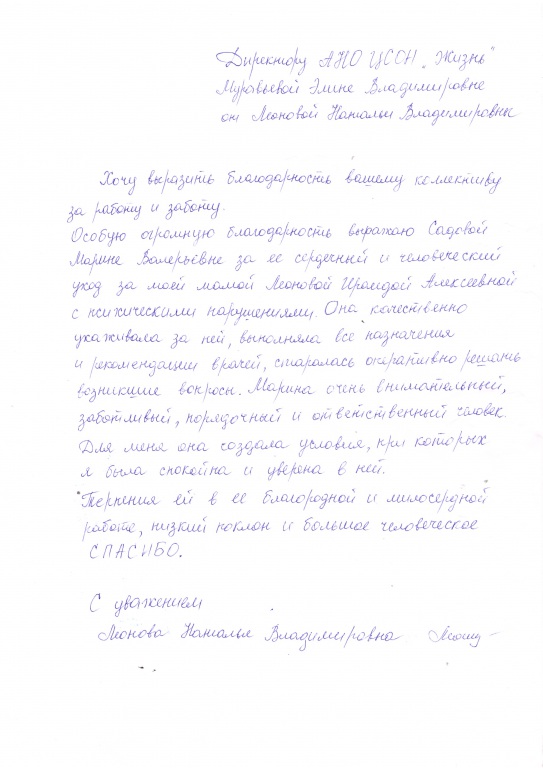 Директору АНО ЦСОН „Жизнь"
Муравьевой Элине Владимировне
от Леоновой Натальи Владимировны
Хочу выразить благодарность вашему коллективу
за работу и заботу.
Особую огромную благодарность выражаю Садовой
Марине Валерьевне за ее сердечный и человеческий
уход за моей мамой Леоновой Ираидой Алексеевной
с психическими нарушениями. Она качественно
ухаживала за ней, выполняла все назначения
и рекомендации врачей, старалась оперативно решать
возникшие вопросы. Марина очень внимательный,
заботливый, порядочный и ответственный человек.
Для меня она создала условия, при которых
я была спокойна и уверена в ней.
Терпения ей в ее благородной и милосердной
работе, низкий поклон и большое человеческое
СПАСИБО.
С уважением
Леонова Наталья Владимировна